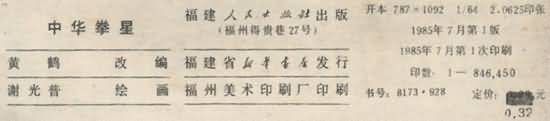 中华拳星
黄鹤 改编
谢光普 绘画
福建人民出版社出版
(福州得贵巷27号)
福建省新华书店发行
福州美术印刷厂印刷
开本 787×1092 1/64 2.0625印张
1985年7月第1版
1985年7月第1次印刷
印数: 1—846,450
书号: 8173·928 定价: 元
0.32